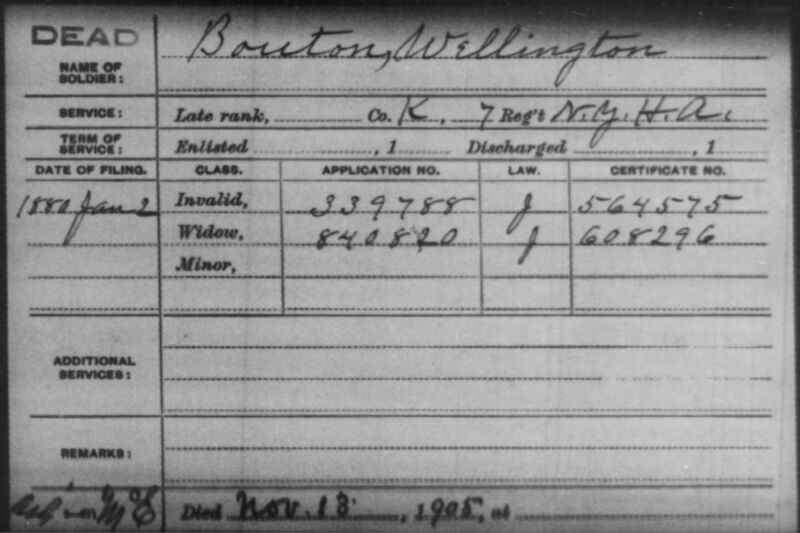 DEAD
Bouton, Wellington
NAME OF
SOLDIER:
SERVICE: Late rank, Co. K, 7 Reg't N.Y.H.A.
TERM OF
SERVICE: Enlisted , 1 Discharged , 1
DATE OF FILING. CLASS. APPLICATION NO. LAW. CERTIFICATE NO.
1880 Jan 2 Invalid, 339788 J 564575
Widow, 840820 J 608296
Minor,
ADDITIONAL
SERVICES:
REMARKS:
Died Nov. 13, 1905, at